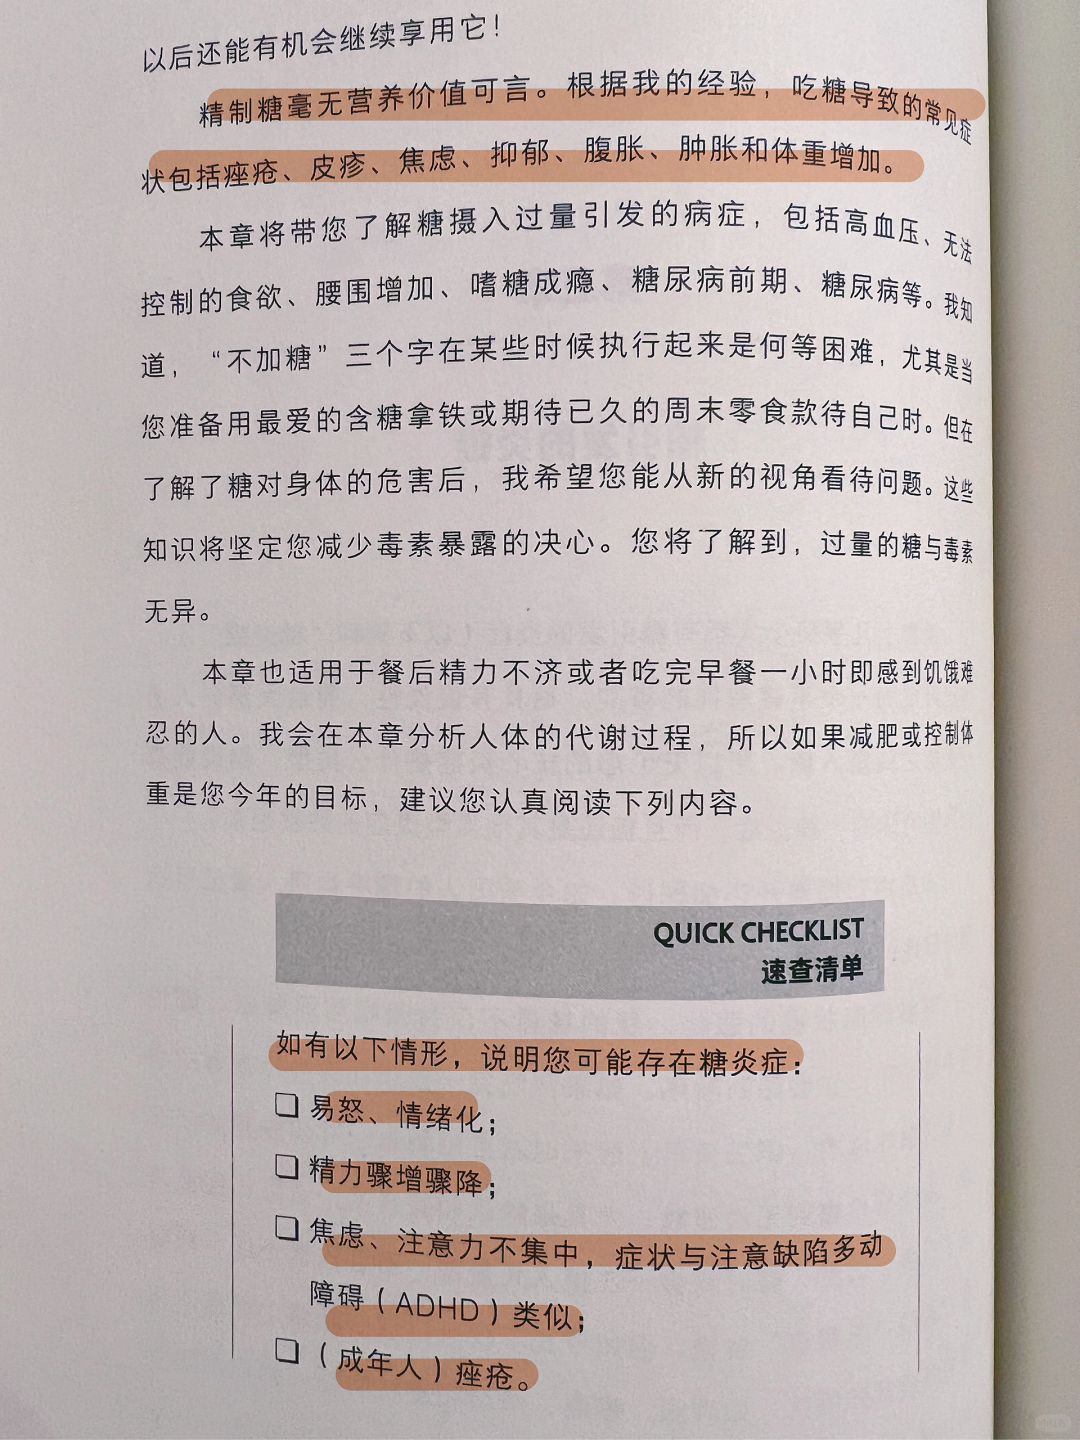 以后还能有机会继续享用它！
精制糖毫无营养价值可言。根据我的经验，吃糖导致的常见症
状包括痤疮、皮疹、焦虑、抑郁、腹胀、肿胀和体重增加。
本章将带您了解糖摄入过量引发的病症，包括高血压、无法
控制的食欲、腰围增加、嗜糖成瘾、糖尿病前期、糖尿病等。我知
道，“不加糖”三个字在某些时候执行起来是何等困难，尤其是当
您准备用最爱的含糖拿铁或期待已久的周末零食款待自己时。但在
了解了糖对身体的危害后，我希望您能从新的视角看待问题。这些
知识将坚定您减少毒素暴露的决心。您将了解到，过量的糖与毒素
无异。
本章也适用于餐后精力不济或者吃完早餐一小时即感到饥饿难
忍的人。我会在本章分析人体的代谢过程，所以如果减肥或控制体
重是您今年的目标，建议您认真阅读下列内容。
QUICK CHECKLIST
速查清单
如有以下情形，说明您可能存在糖炎症：
❏ 易怒、情绪化；
❏ 精力骤增骤降；
❏ 焦虑、注意力不集中，症状与注意缺陷多动
障碍（ADHD）类似；
❏（成年人）痤疮。